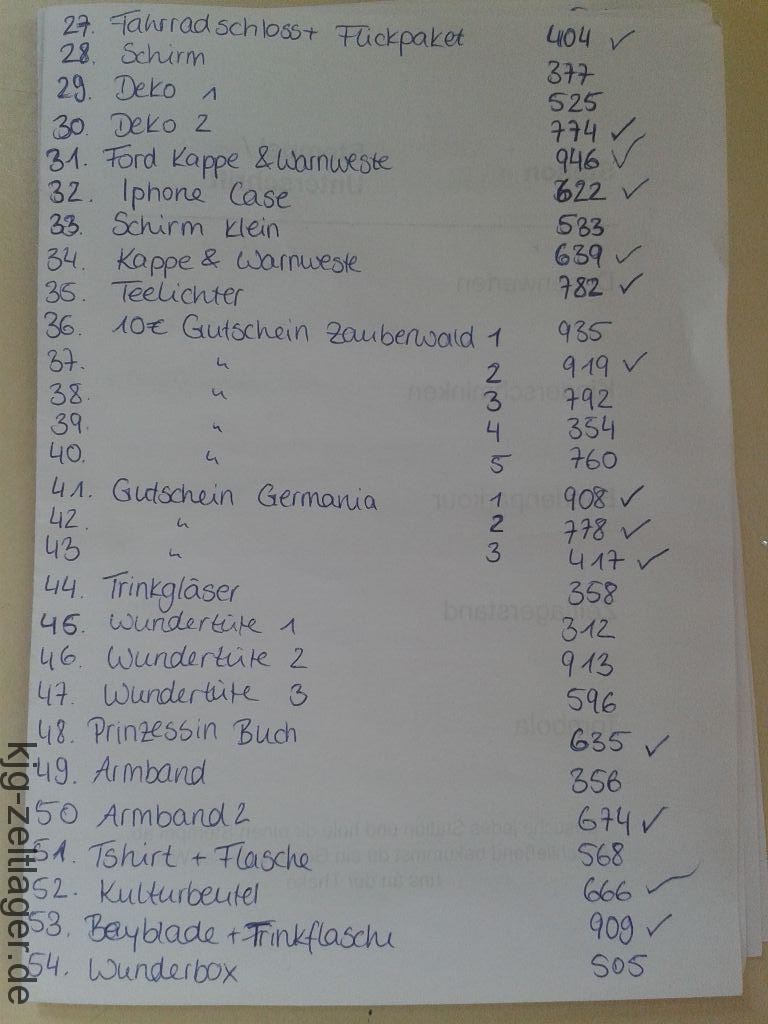 27. Fahrradschloss + Flickpaket 404 ✓
28. Schirm 377
29. Deko 1 525
30. Deko 2 774 ✓
31. Ford Kappe & Warnweste 946 ✓
32. Iphone Case 622 ✓
33. Schirm klein 533
34. Kappe & Warnweste 639 ✓
35. Teelichter 782 ✓
36. 10€ Gutschein Zauberwald 1 935
37. " 2 919 ✓
38. " 3 792
39. " 4 354
40. " 5 760
41. Gutschein Germania 1 908 ✓
42. " 2 778 ✓
43 " 3 417 ✓
44. Trinkgläser 358
45. Wundertüte 1 312
46. Wundertüte 2 913
47. Wundertüte 3 596
48. Prinzessin Buch 635 ✓
49. Armband 356
50 Armband 2 674 ✓
51. Tshirt + Flasche 568
52. Kulturbeutel 666 ✓
53. Beyblade + Trinkflasche 909 ✓
54. Wunderbox 505
kjg-zeltlager.de